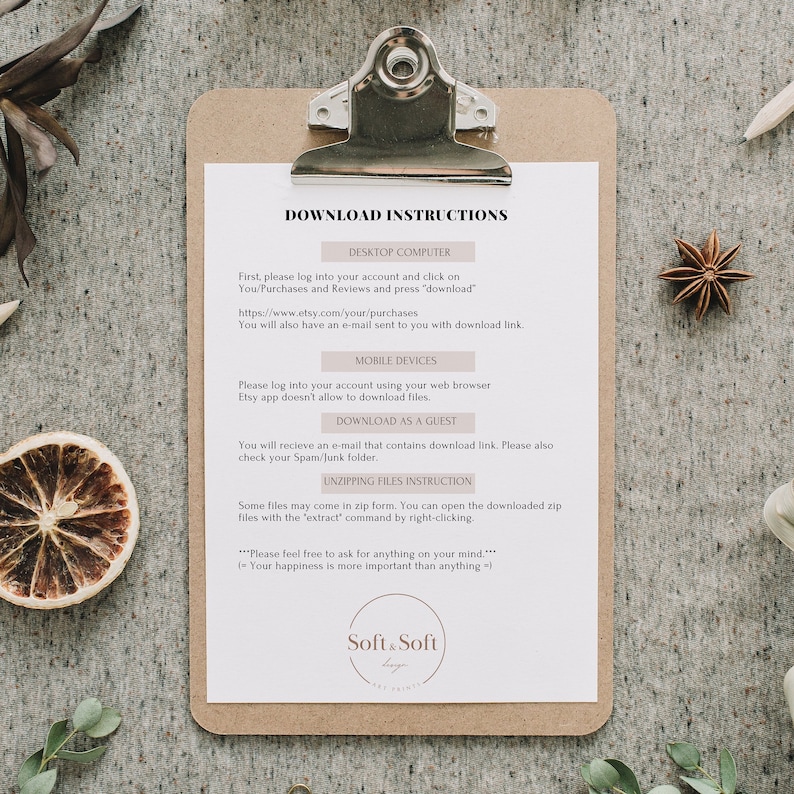 DOWNLOAD INSTRUCTIONS
DESKTOP COMPUTER
First, please log into your account and click on
You/Purchases and Reviews and press "download"
https://www.etsy.com/your/purchases
You will also have an e-mail sent to you with download link.
MOBILE DEVICES
Please log into your account using your web browser
Etsy app doesn't allow to download files.
DOWNLOAD AS A GUEST
You will recieve an e-mail that contains download link. Please also
check your Spam/Junk folder.
UNZIPPING FILES INSTRUCTION
Some files may come in zip form. You can open the downloaded zip
files with the "extract" command by right-clicking.
***Please feel free to ask for anything on your mind.***
(= Your happiness is more important than anything =)
Soft & Soft
design
ART PRINTS